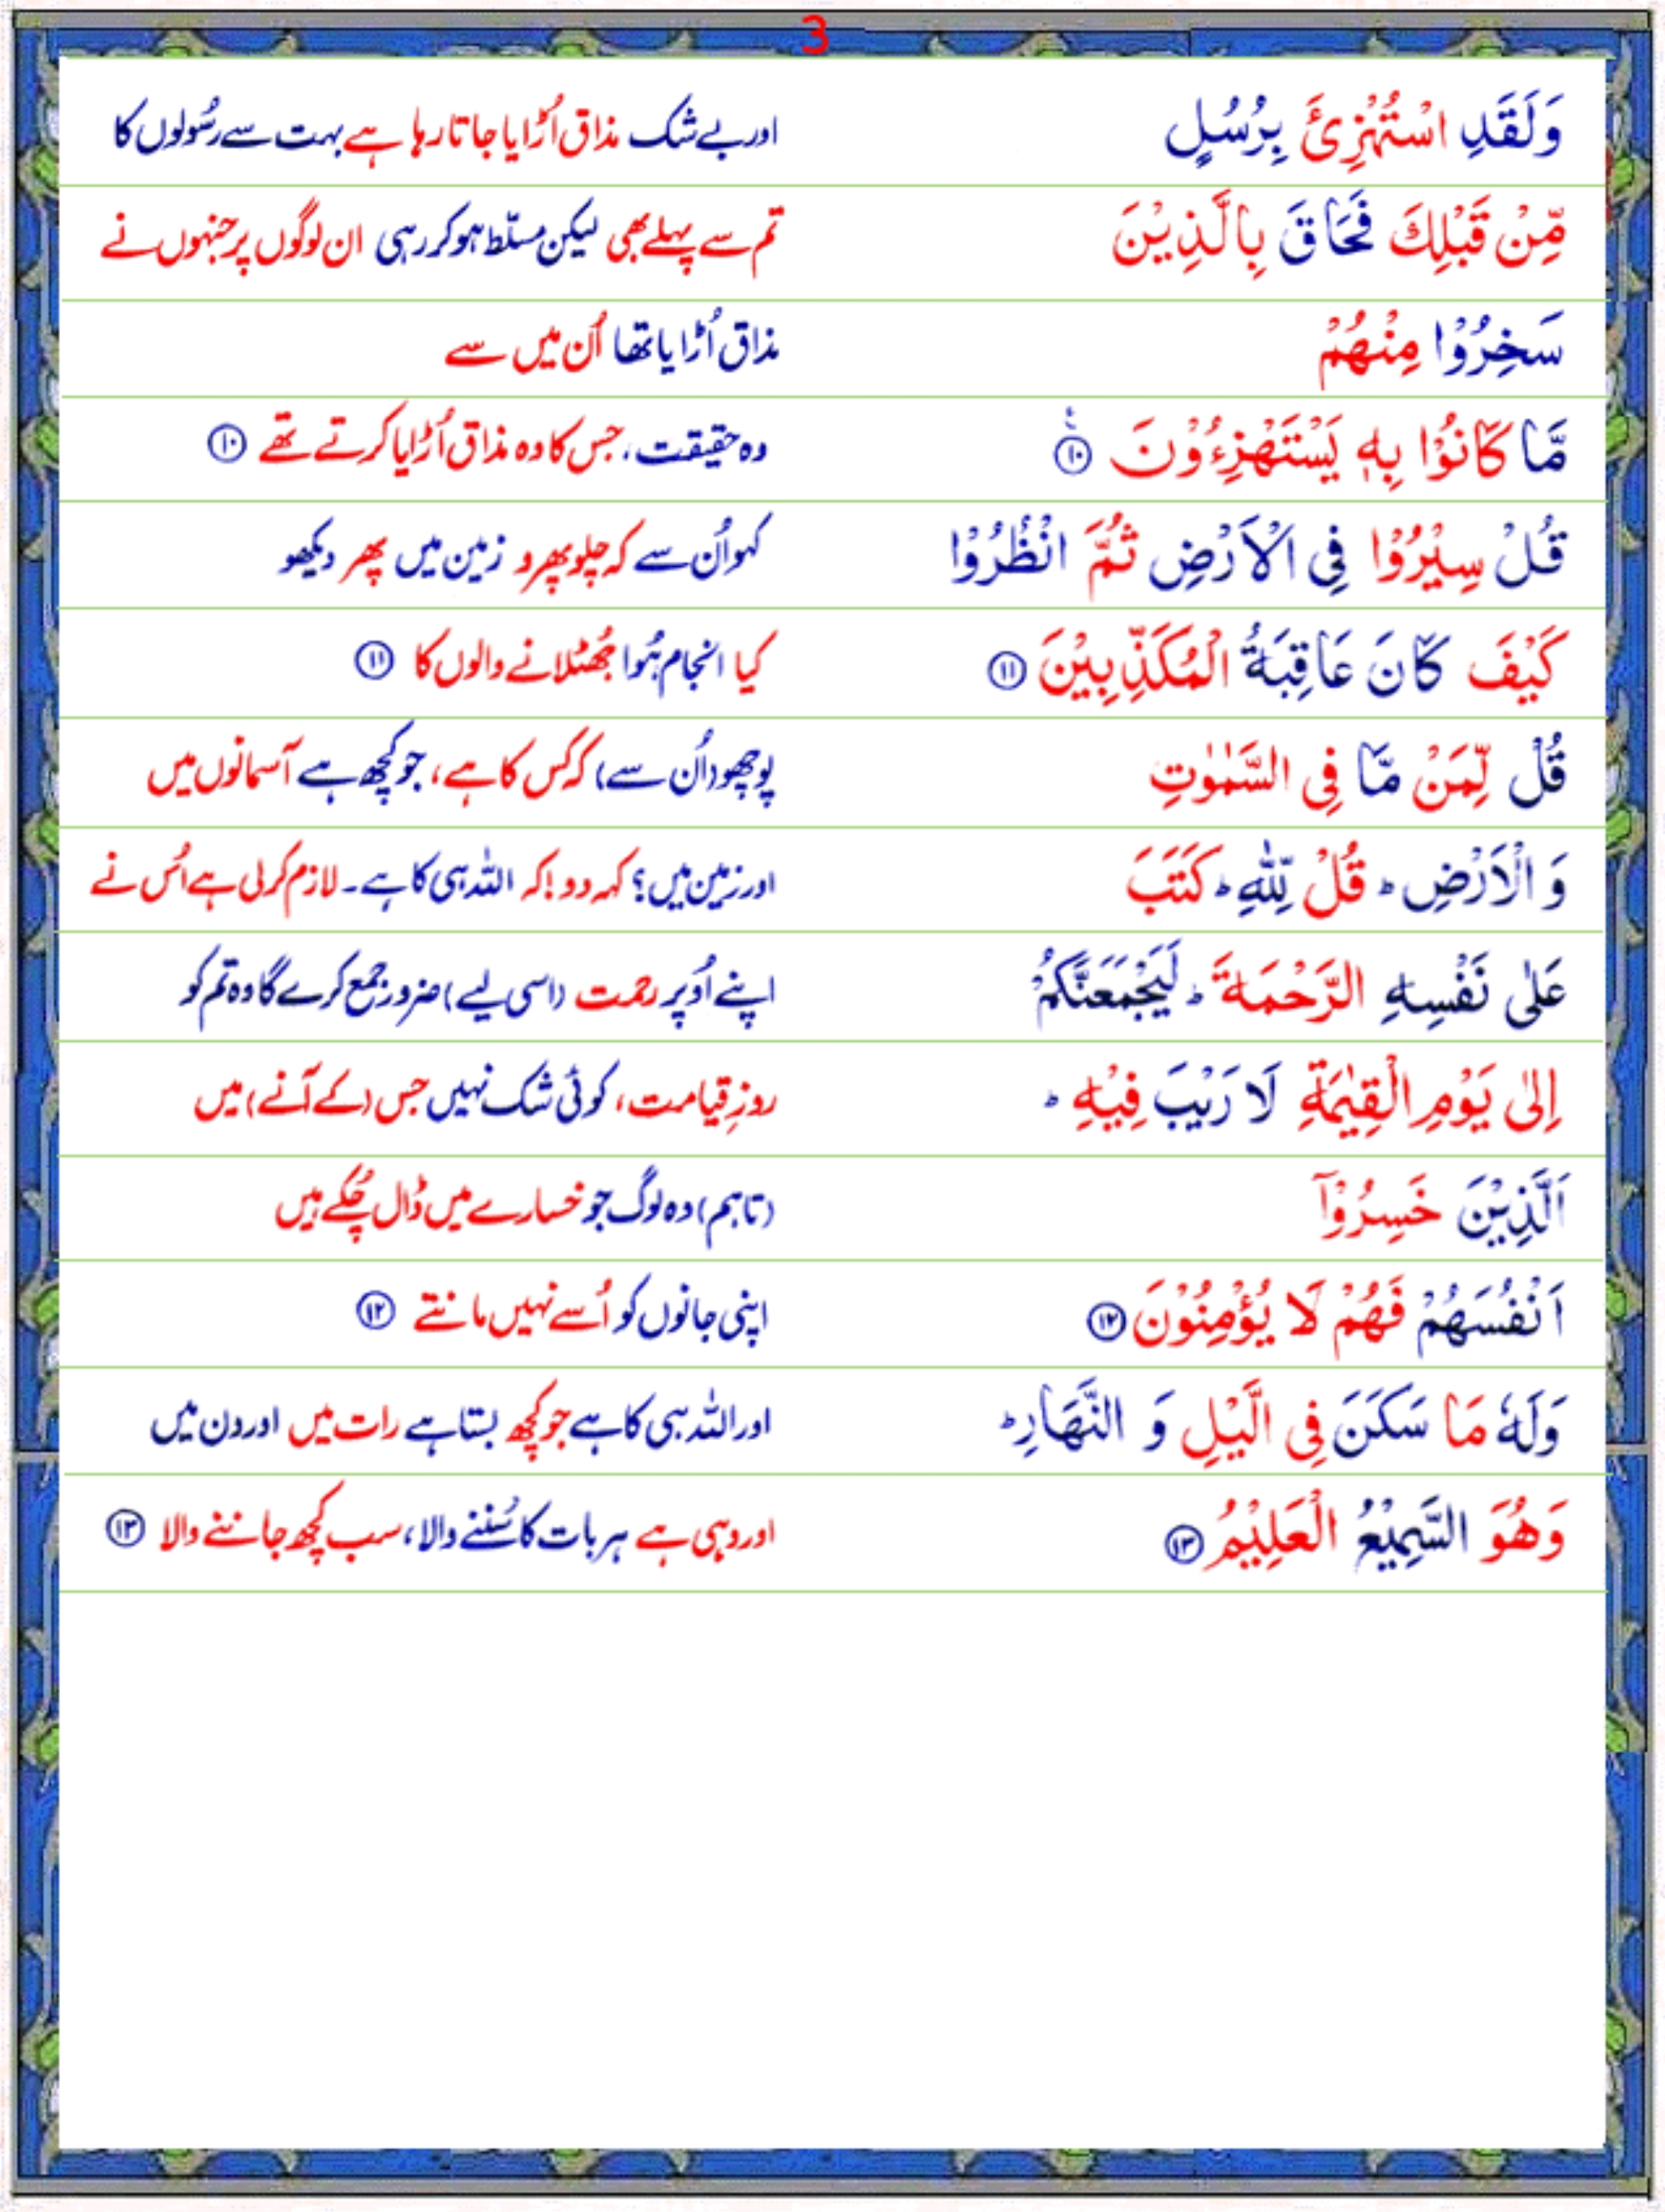 3
وَلَقَدِ اسْتُهْزِئَ بِرُسُلٍ اور بے شک مذاق اُڑایا جاتا رہا ہے بہت سے رسُولوں کا
مِّنْ قَبْلِكَ فَحَاقَ بِالَّذِيْنَ تم سے پہلے بھی لیکن مسلّط ہو کر رہی ان لوگوں پر جنہوں نے
سَخِرُوْا مِنْهُمْ مذاق اُڑایا تھا اُن میں سے
مَّا كَانُوْا بِهٖ يَسْتَهْزِءُوْنَ ۱۰ وہ حقیقت، جس کا وہ مذاق اُڑایا کرتے تھے ۱۰
قُلْ سِيْرُوْا فِى الْاَرْضِ ثُمَّ انْظُرُوْا کہو اُن سے کہ چلو پھرو زمین میں پھر دیکھو
كَيْفَ كَانَ عَاقِبَةُ الْمُكَذِّبِيْنَ ۱۱ کیا انجام ہُوا جُھٹلانے والوں کا ۱۱
قُلْ لِّمَنْ مَّا فِى السَّمٰوٰتِ پوچھو (اُن سے) کہ کس کا ہے، جو کچھ ہے آسمانوں میں
وَ الْاَرْضِ ؕ قُلْ لِّلّٰهِ ؕ كَتَبَ اور زمین میں؟ کہہ دو! کہ اللہ ہی کا ہے۔ لازم کرلی ہے اُس نے
عَلٰى نَفْسِهِ الرَّحْمَةَ ؕ لَيَجْمَعَنَّكُمْ اپنے اُوپر رحمت (اسی لیے) ضرور جمع کرے گا وہ تم کو
اِلٰى يَوْمِ الْقِيٰمَةِ لَا رَيْبَ فِيْهِ ؕ روزِ قیامت، کوئی شک نہیں جس (کے آنے) میں
اَلَّذِيْنَ خَسِرُوْۤا (تاہم) وہ لوگ جو خسارے میں ڈال چُکے ہیں
اَنْفُسَهُمْ فَهُمْ لَا يُؤْمِنُوْنَ ۱۲ اپنی جانوں کو اُسے نہیں مانتے ۱۲
وَلَهٗ مَا سَكَنَ فِى الَّيْلِ وَ النَّهَارِ ؕ اور اللہ ہی کا ہے جو کچھ بستا ہے رات میں اور دن میں
وَهُوَ السَّمِيْعُ الْعَلِيْمُ ۱۳ اور وہی ہے ہر بات کا سُننے والا، سب کچھ جاننے والا ۱۳